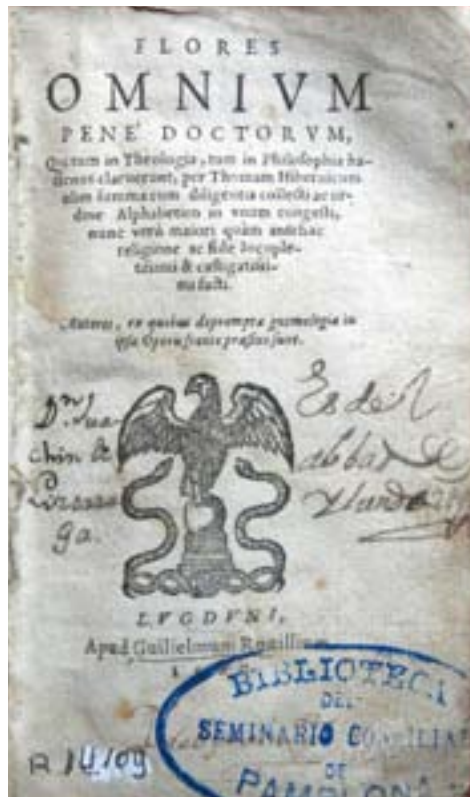 FLORES
OMNIVM
PENE' DOCTORVM,
Qui tum in Theologia, tum in Philosophia ha-
ctenus claruerunt, per Thomam Hibernicum
olim summa cum diligentia collecti ac or-
dine Alphabetico in vnum congesti,
nunc verò maiori quàm antehac
religione ac fide locuple-
tiores & castigatio-
res facti.
Autores, ex quibus deprompta gnomologia in
ipso Operis
Dn. Jua-
chin de
ga.
Es del
abbad de
LVGDVNI,
Apud Guilielmum Rouillium
BIBLIOTECA
DEL
SEMINARIO CONCILIAR
DE
PAMPLONA
R 14/109